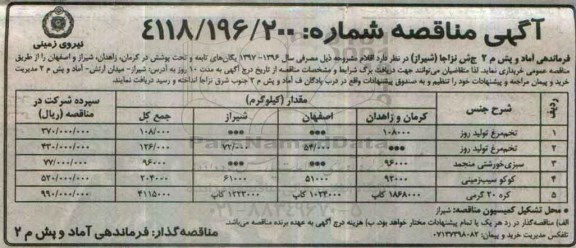 آگهی مناقصه شماره: ۴۱۱۸/۱۹۶/۲۰۰
نیروی زمینی
فرماندهی آماد و پش م ۲ ج‌ش نزاجا (شیراز) در نظر دارد اقلام مشروحه ذیل مصرفی سال ۱۳۹۶-۱۳۹۷ یگان‌های تابعه و تحت پوشش در کرمان، زاهدان، شیراز و اصفهان را از طریق
مناقصه عمومی خریداری نماید. لذا متقاضیان می‌توانند جهت دریافت برگ شرایط و مشخصات مناقصه از تاریخ درج آگهی به مدت ۱۰ روز به آدرس: شیراز- میدان ارتش- آماد و پش م ۲ مدیریت
خرید و پیمان مراجعه و پیشنهادات خود را تنظیم و به صندوق پیشنهادات واقع در درب پادگان ف آماد و پش م ۲ جنوب شرق نزاجا انداخته و رسید دریافت نمایند.
ردیف شرح جنس مقدار (کیلوگرم) سپرده شرکت در مناقصه (ریال)
کرمان و زاهدان اصفهان شیراز جمع کل
۱ تخم‌مرغ تولید روز ۱۰۸۰۰۰ *** *** ۱۰۸/۰۰۰ ۳۷۰/۰۰۰/۰۰۰
۲ تخم‌مرغ تولید روز *** ۵۴/۰۰۰ ۷۲/۰۰۰ ۱۲۶/۰۰۰ ۴۳۰/۰۰۰/۰۰۰
۳ سبزی‌خورشتی منجمد ۹۶۰۰۰ *** *** ۹۶۰۰۰ ۷۷/۰۰۰/۰۰۰
۴ کوکو سیب‌زمینی ۹۲۰۰۰ ۵۱۰۰۰ ۶۱۰۰۰ ۲۰۴۰۰۰ ۵۲۰/۰۰۰/۰۰۰
۵ کره ۲۰ گرمی ۱۸۶۸۰۰۰ کاپ ۱۰۲۴۰۰۰ کاپ ۱۲۲۳۰۰۰ کاپ ۴۱۱۵۰۰۰ ۹۹۰/۰۰۰/۰۰۰
* محل تشکیل کمیسیون مناقصه: شیراز
الف) مناقصه‌گذار در رد هر یک یا تمام پیشنهادات مختار خواهد بود. ب) هزینه درج آگهی به عهده برنده مناقصه می‌باشد.
تلفکس مدیریت خرید و پیمان: ۰۷۱۳۷۳۹۸۰۸۲
مناقصه‌گذار: فرماندهی آماد و پش م ۲